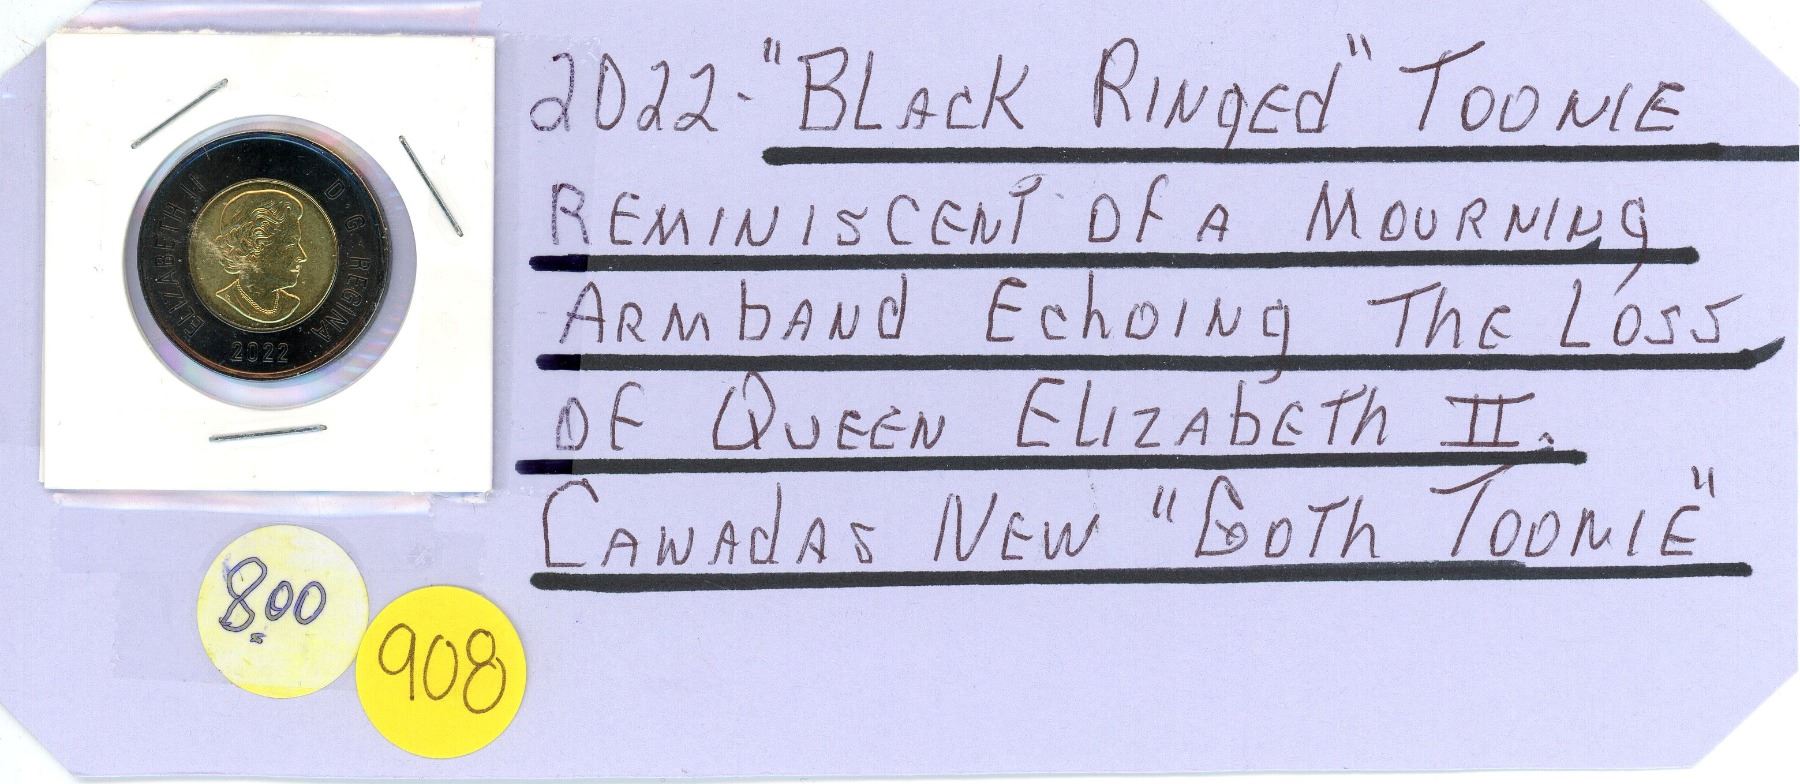 2022-"BLACK RINGED" TOONIE
REMINISCENT OF A MOURNING
ARMBAND ECHOING THE LOSS
OF QUEEN ELIZABETH II.
CANADAS NEW "GOTH TOONIE"
ELIZABETH II D·G·REGINA
2022
8.00
908